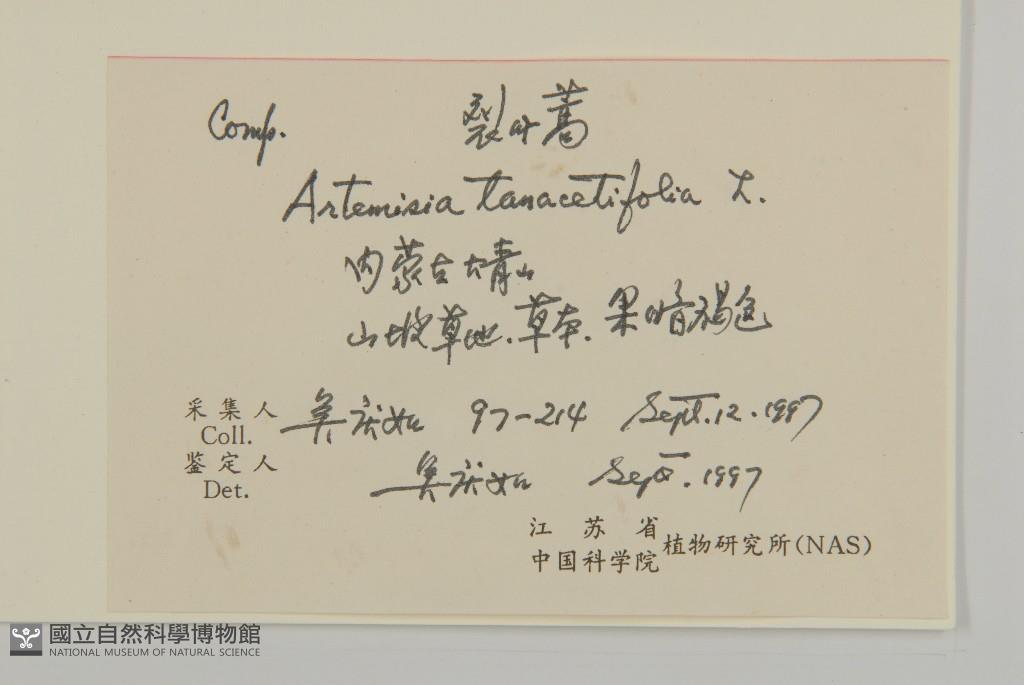 Comp. 裂叶蒿
Artemisia tanacetifolia L.
内蒙古大青山
山坡草地.草本.果暗褐色
采集人
Coll. 吴庆如 97-214 Sept.12.1997
鉴定人
Det. 吴庆如 Sept.1997
江苏省
中国科学院 植物研究所(NAS)
國立自然科學博物館
NATIONAL MUSEUM OF NATURAL SCIENCE